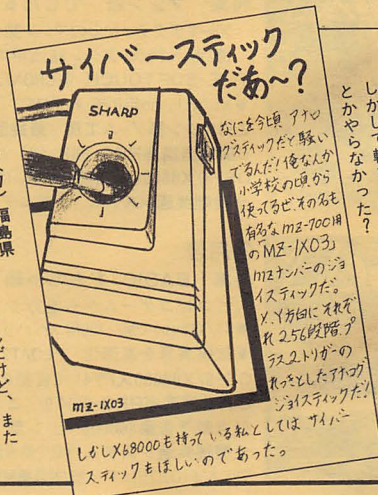 サイバ〜スティック
だあ〜?
SHARP
なにを今頃 アナロ
グスティックだと騒い
でるんだ! 俺なんか
小学校の頃から
使ってるぜ。その名も
有名なmz-700用
の「MZ-1X03」
mzナンバーのジョ
イスティックだ。
X、Y方向にそれぞ
れ256段階プ
ラス2トリガーの
れっきとしたアナログ
ジョイスティックだ!
mz-1X03
しかしX68000も持っている私としては サイバー
スティックもほしいのであった。
とかやらなかった?
福島県
だけど、また